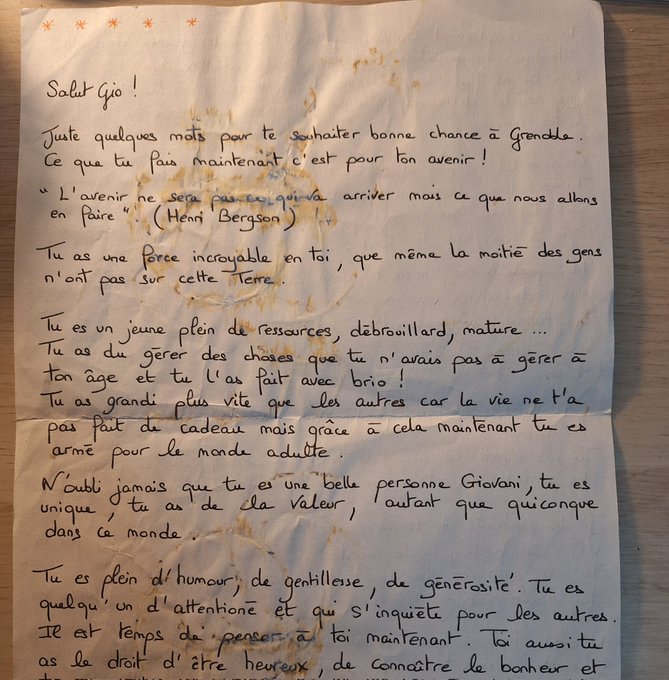 Salut Gio !
Juste quelques mots pour te souhaiter bonne chance à Grenoble.
Ce que tu fais maintenant c'est pour ton avenir !
" L'avenir ne sera pas ce qui va arriver mais ce que nous allons
en faire ". (Henri Bergson)
Tu as une force incroyable en toi, que même la moitié des gens
n'ont pas sur cette Terre.
Tu es un jeune plein de ressources, débrouillard, mature ...
Tu as du gérer des choses que tu n'avais pas à gérer à
ton âge et tu l'as fait avec brio !
Tu as grandi plus vite que les autres car la vie ne t'a
pas fait de cadeau mais grâce à cela maintenant tu es
armé pour le monde adulte.
N'oubli jamais que tu es une belle personne Giovani, tu es
unique, tu as de la valeur, autant que quiconque
dans ce monde.
Tu es plein d'humour, de gentillesse, de générosité. Tu es
quelqu'un d'attentioné et qui s'inquiète pour les autres.
Il est temps de penser à toi maintenant. Toi aussi tu
as le droit d'être heureux, de connaître le bonheur et